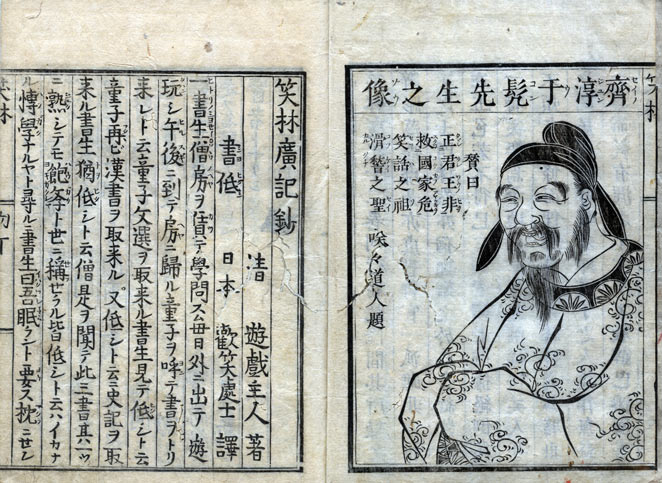 齊淳于髠先生之像
賛曰
正君王非
救國家危
笑話之祖
滑𥡴之聖
咲々道人題
笑林廣記鈔
清 遊戯主人 著
書低 日本 歡笑處士 譯
一書生僧房ヲ賃テ學問ス毎日外ニ出テ遊
玩シ午後ニ到テ房ニ歸ル童子ヲ呼テ書ヲトリ
来レト云童子文選ヲ取来ル書生見テ低シト云
童子再ヒ漢書ヲ取来ル又低シト云史記ヲ取
来ル書生猶低シト云僧是ヲ聞テ此三書其一ツ
ニ熟シテモ飽學ト世ニ稱セラル皆低シト云ハイカナ
ル博學ナルヤト尋ルニ書生曰吾眠ラントシ要ス枕ニセン